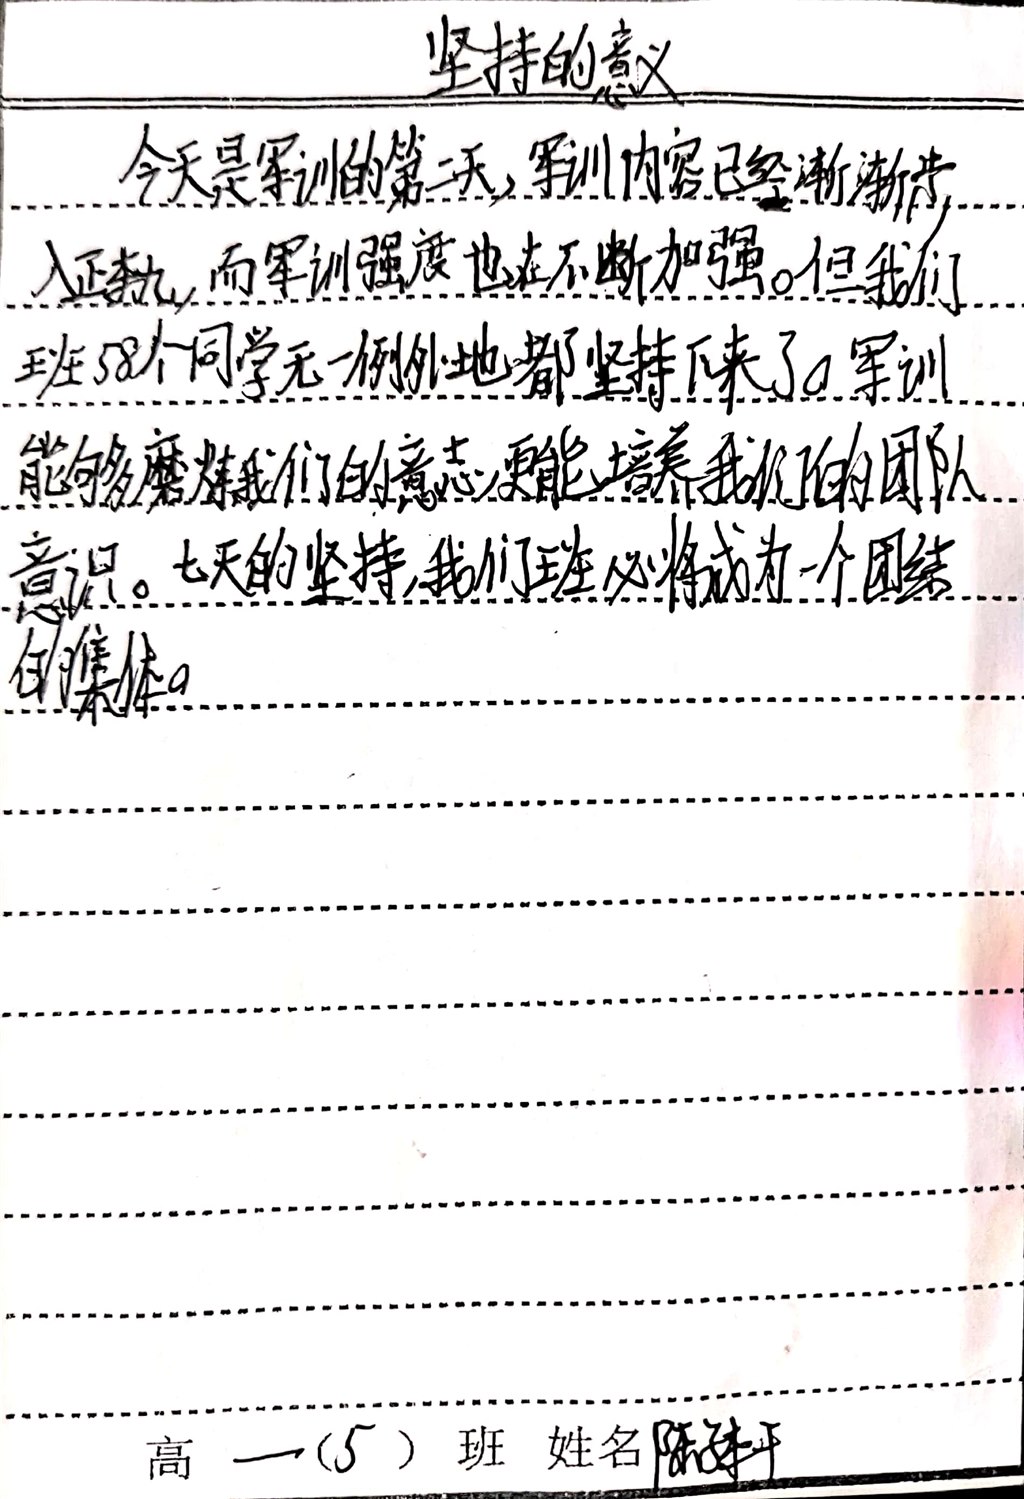 坚持的意义
今天是军训的第二天，军训内容已经渐渐步
入正轨，而军训强度也在不断加强。但我们
班58个同学无一例外地都坚持下来了。军训
能够磨炼我们的意志，更能培养我们的团队
意识。七天的坚持，我们班必将成为一个团结
的集体。
高一(5)班 姓名陈